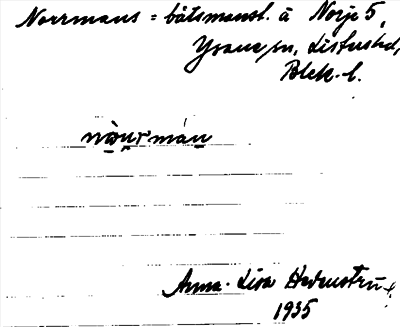 Norrmans = båtsmanst. å Norje 5,
Ysane sn, Listers hd,
Blek. l.
Anna-Lisa Hedenström
1935